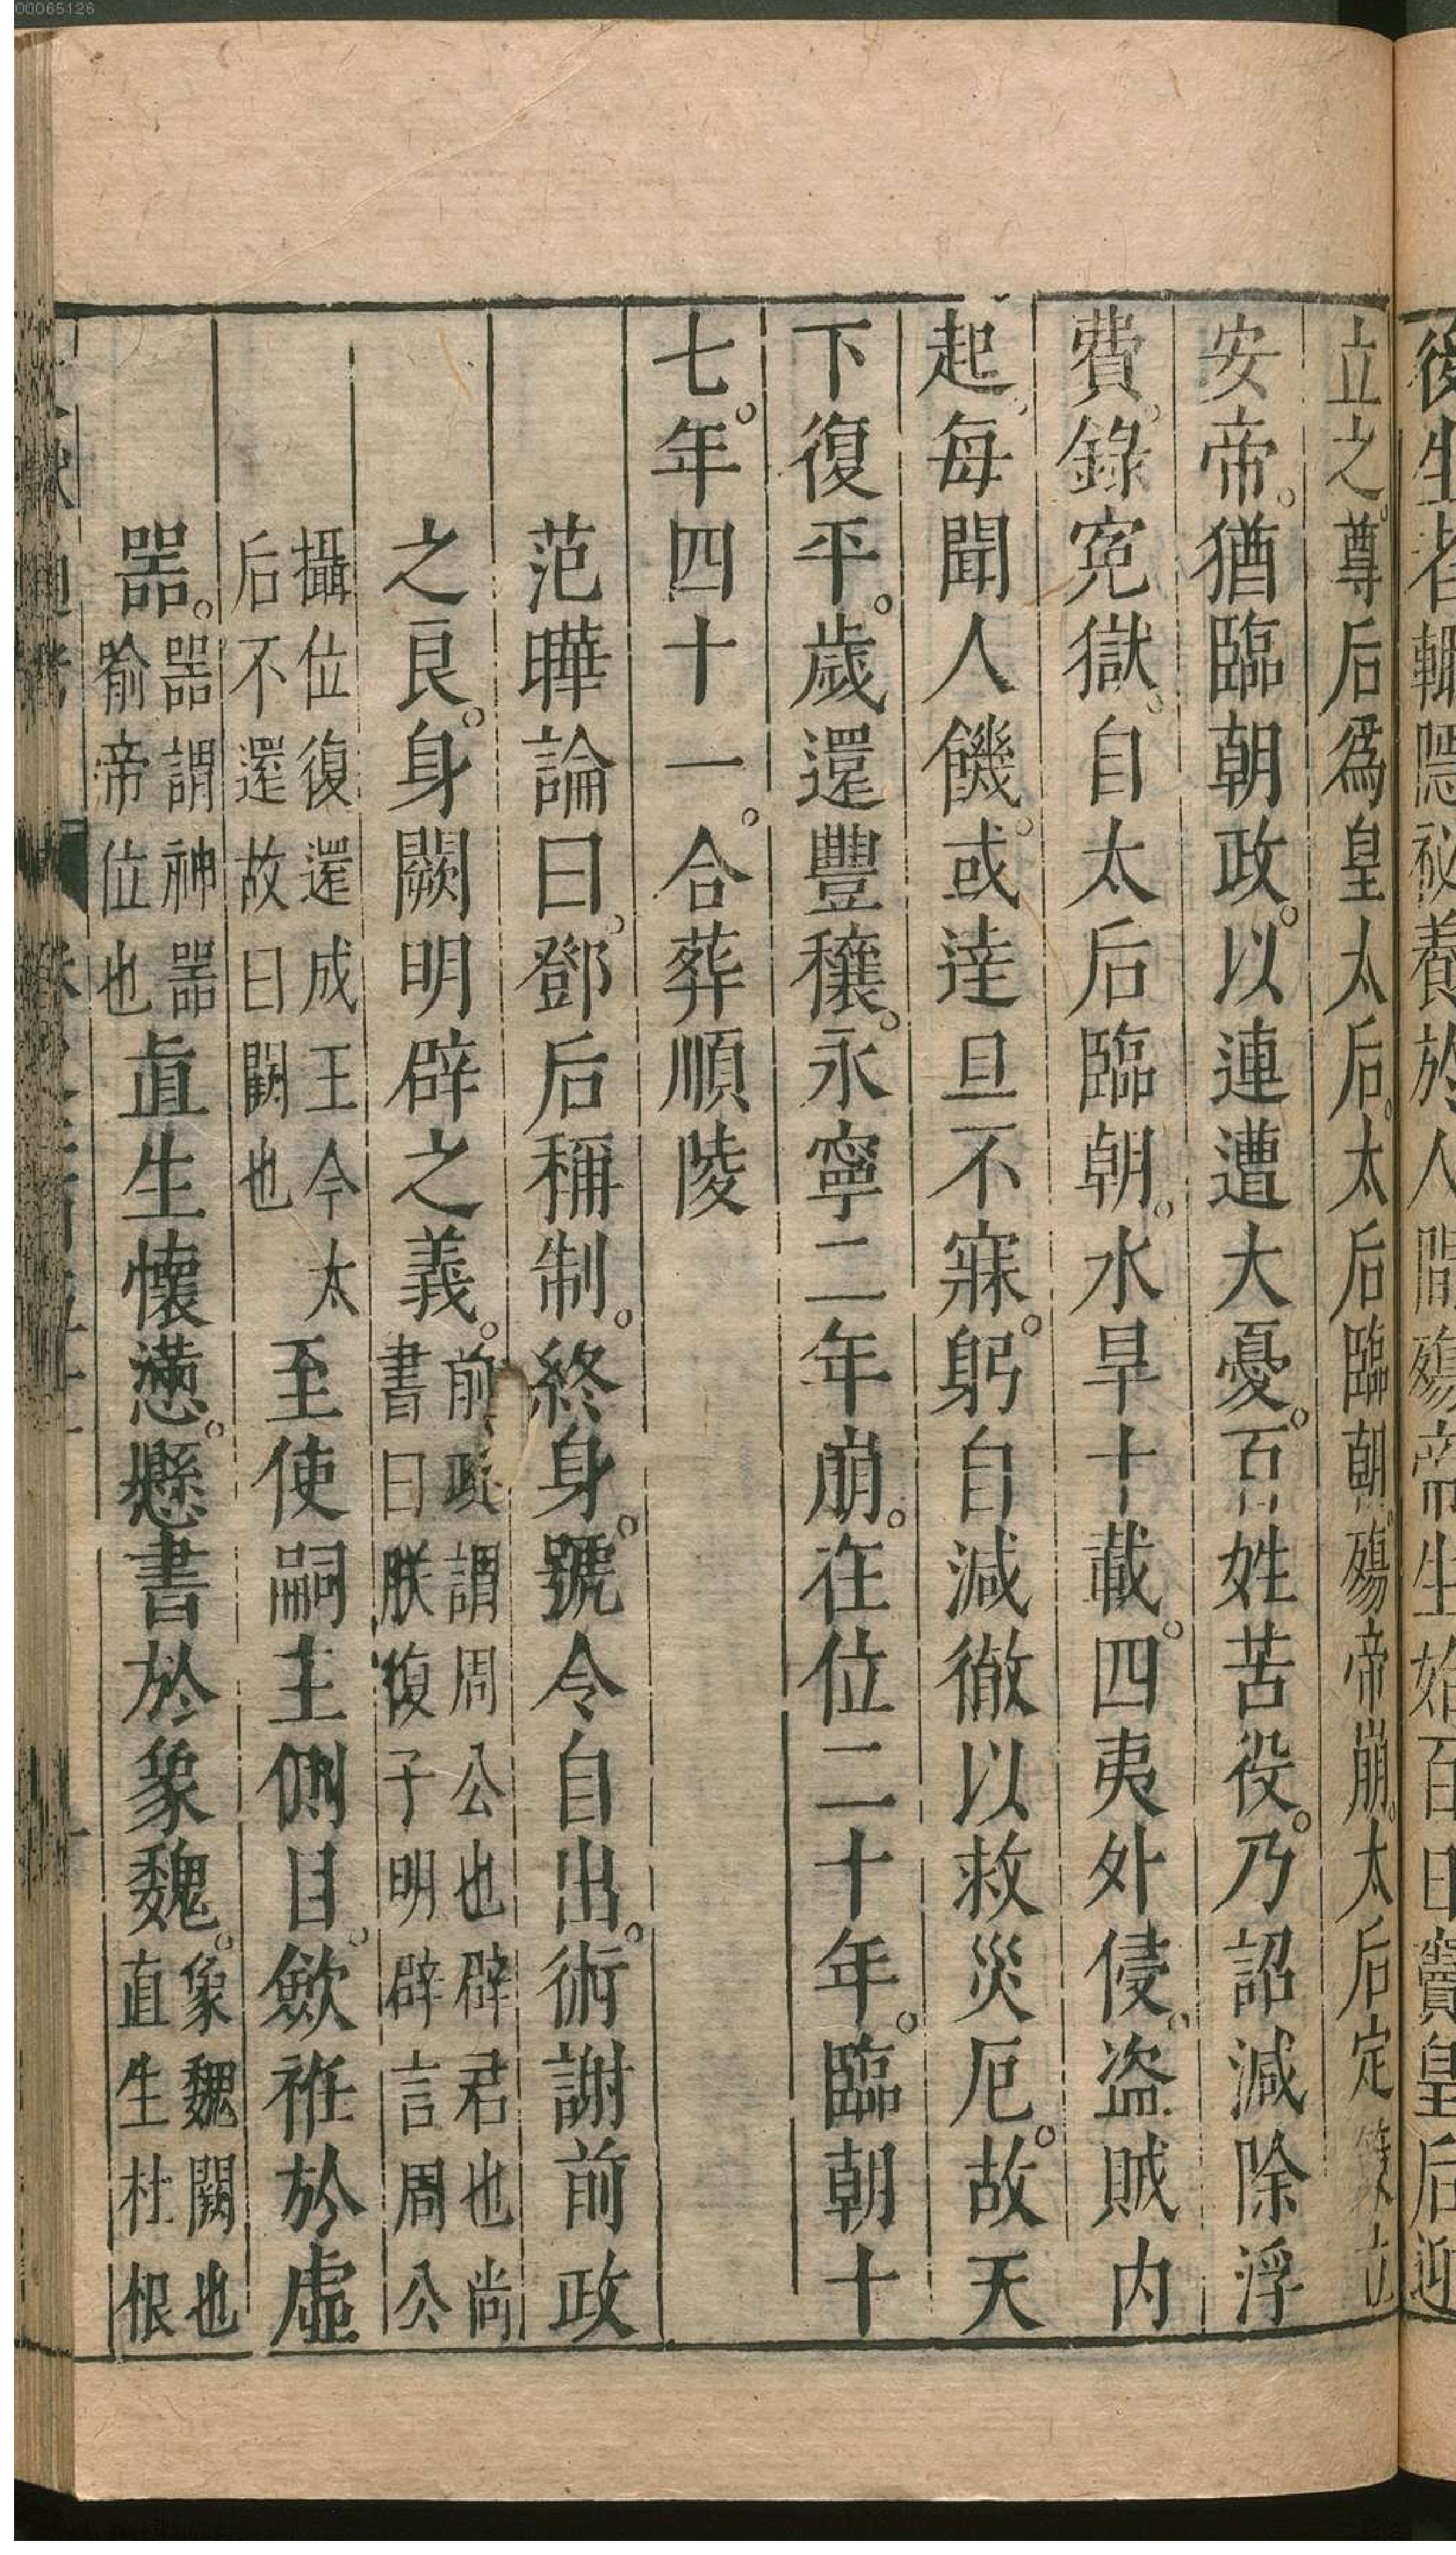 00065126
後生者輒隱祕養於人間殤帝生始百日鄧皇后迎
立之。尊后爲皇太后。太后臨朝。殤帝崩。太后定策立
安帝。猶臨朝政。以連遭大憂。百姓苦役。乃詔減除浮
費。錄寃獄。自太后臨朝。水旱十載。四夷外侵。盗賊内
起。每聞人饑。或逹旦不寐。躬自減徹以救災厄。故天
下復平。歲還豐穰。永寧二年崩。在位二十年。臨朝十
七年。四十一。合葬順陵
范曄論曰。鄧后稱制。終身。號令自出。術謝前政
之良。身闕明辟之義。前政謂周公也辟君也尚書曰朕復子明辟言周公
攝位復還成王今太后不還故曰闕也至使嗣主側目。斂衽於虛
器。器謂神器喻帝位也直生懷懣。懸書於象魏。象魏闕也直生杜根